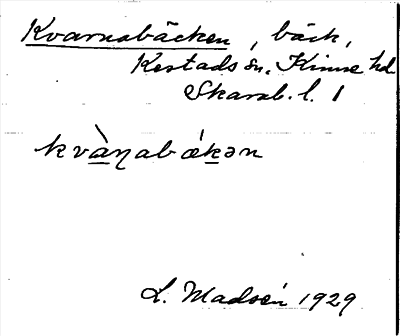 Kvarnabäcken, bäck,
Kestads sn. Kinne hd
Skarab. l. 1
kvàɳabækən
L. Madsén 1929